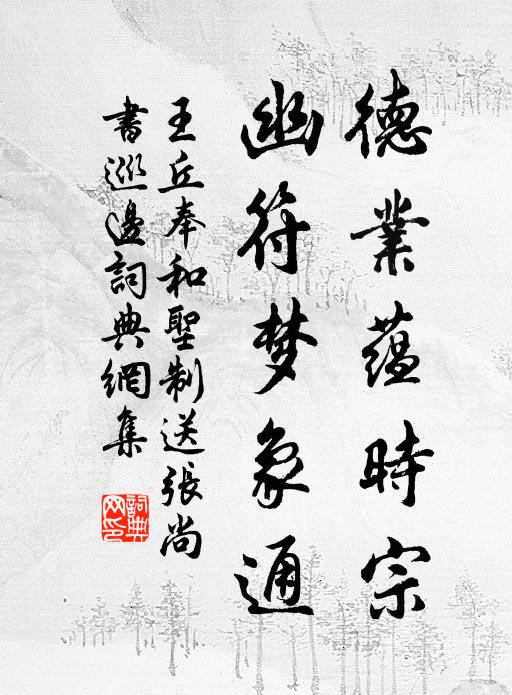 德業蘊時宗
幽符梦象通
王丘奉和聖制送張尚
書巡邊詞典網集
詞典
网印